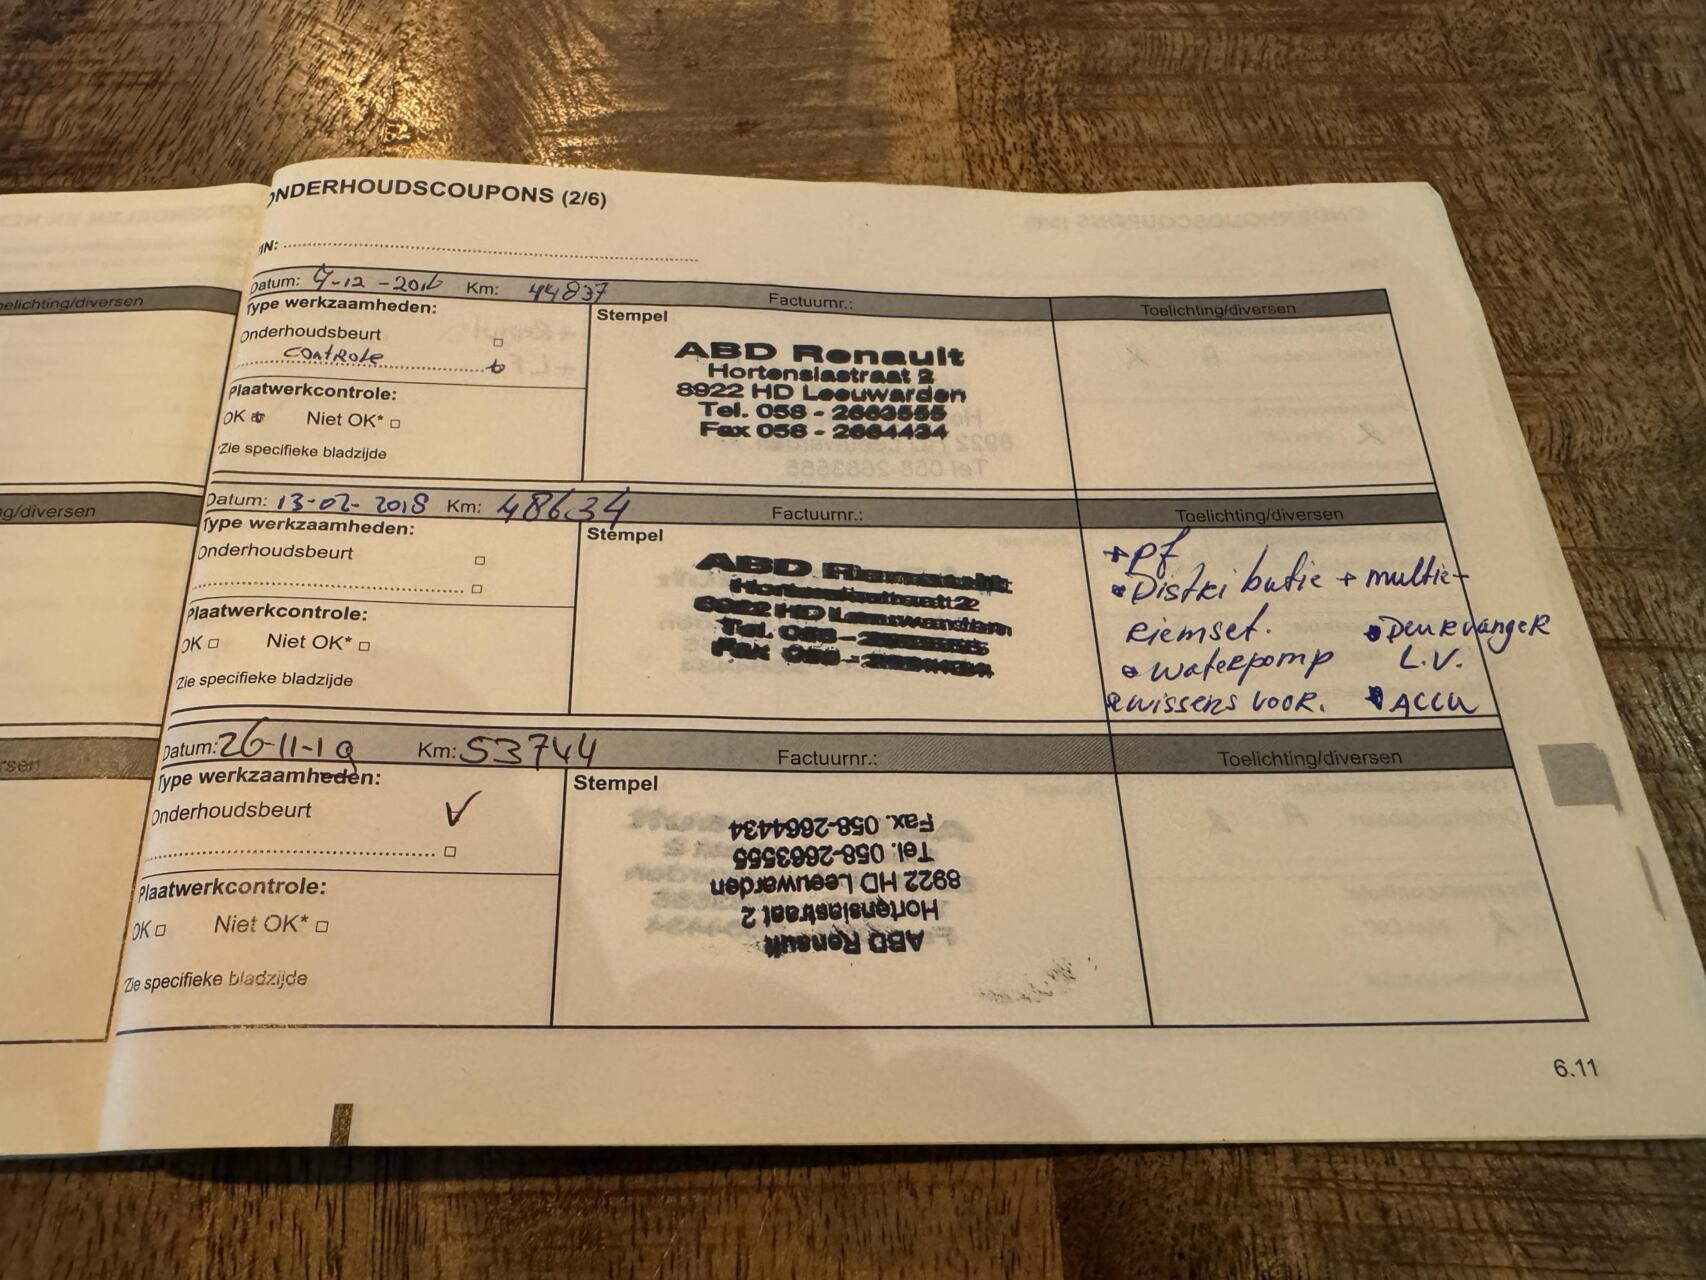 ONDERHOUDSCOUPONS (2/6)
Datum: 7-12-2016 Km: 44837 Factuurnr.: Toelichting/diversen
Type werkzaamheden:
Onderhoudsbeurt
controle
Plaatwerkcontrole:
OK Niet OK*
*Zie specifieke bladzijde
Stempel
ABD Renault
Hortensiastraat 2
8922 HD Leeuwarden
Tel. 058 - 2663555
Fax 058 - 2664434
Datum: 13-02-2018 Km: 48634 Factuurnr.: Toelichting/diversen
Type werkzaamheden:
Onderhoudsbeurt
Plaatwerkcontrole:
OK Niet OK*
*Zie specifieke bladzijde
Stempel
ABD Renault
Hortensiastraat 2
8922 HD Leeuwarden
Tel. 058 - 2663555
Fax 058 - 2664434
+ pf
Distributie + multie-
riemset.
Waterpomp
wissers voor.
Deurvanger
L.V.
ACCU
Datum: 26-11-19 Km: 53744 Factuurnr.: Toelichting/diversen
Type werkzaamheden:
Onderhoudsbeurt
Plaatwerkcontrole:
OK Niet OK*
Zie specifieke bladzijde
Stempel
ABD Renault
Hortensiastraat 2
8922 HD Leeuwarden
Tel. 058-2663555
Fax. 058-2664434
6.11